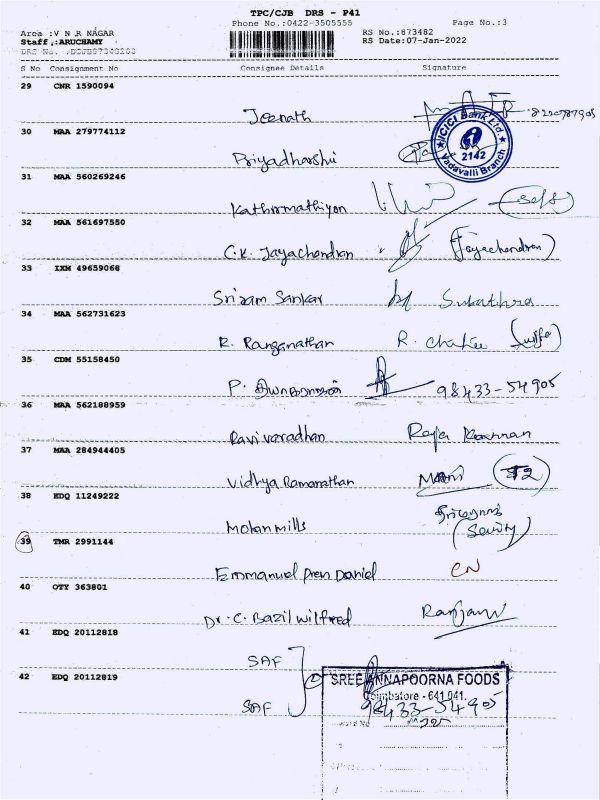 TPC/CJB DRS - P41
Phone No.:0422-3505555 Page No.:3
Area :V N R NAGAR RS No.:873482
Staff :ARUCHAMY RS Date:07-Jan-2022
DRS No.
S No Consignment No Consignee Details Signature
29 CNR 1590094
Jeenath
ICICI Bank Ltd
2142
Vadavalli Branch
30 MAA 279774112
Priyadharshi
31 MAA 560269246
Kathirmathiyon (self)
32 MAA 561697550
C.K. Jayachandran (Jayachandran)
33 IXM 49659068
Sriram Sankar
34 MAA 562731623
R. Ranganathan R. (wife)
35 CDM 55158450
P. 98433-54905
36 MAA 562188959
Ravi varadhan Raja
37 MAA 284944405
Vidhya Ramanathan Mani
38 EDQ 11249222
Mohan mills
39 TMR 2991144
Emmanuel Prem Daniel CN
40 OTY 363801
Dr. C. Bazil wilfred Ranjani
41 EDQ 20112818
SAF
42 EDQ 20112819
SAF
SREE ANNAPOORNA FOODS
Coimbatore - 641 041.
98433-54905